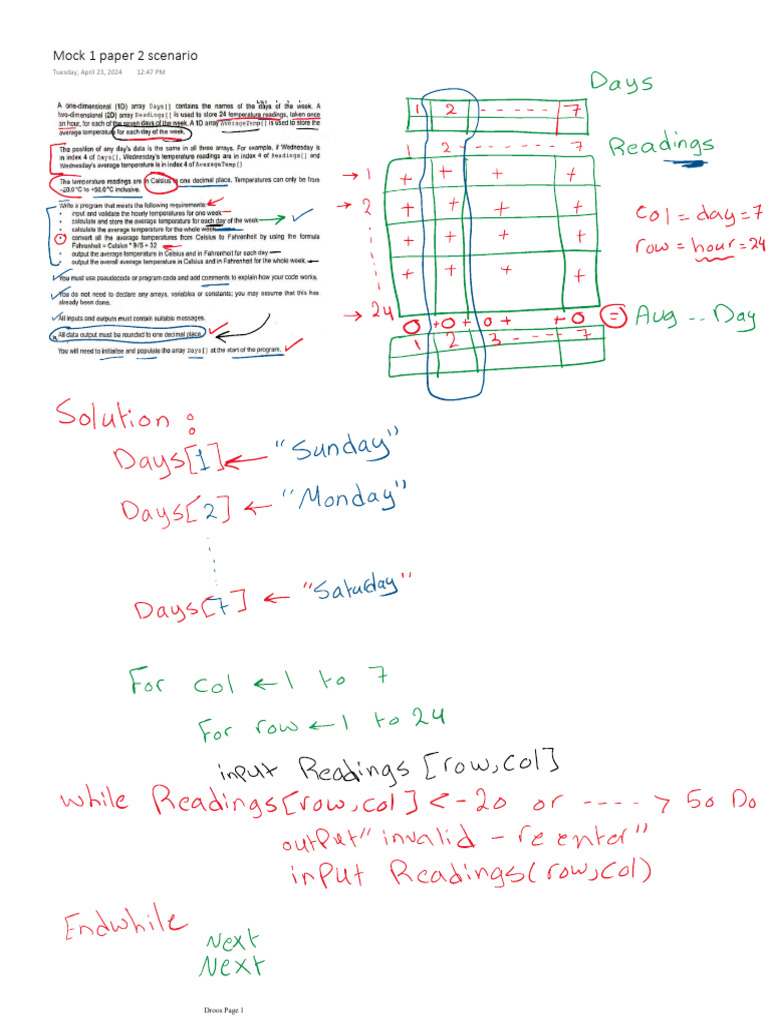 Mock 1 paper 2 scenario
Tuesday, April 23, 2024 12:47 PM
A one-dimensional (1D) array Days[] contains the names of the days of the week. A
two-dimensional (2D) array Readings[] is used to store 24 temperature readings, taken once
an hour, for each of the seven days of the week. A 1D array AverageTemp[] is used to store the
average temperature for each day of the week.
The position of any day's data is the same in all three arrays. For example, if Wednesday is
in index 4 of Days[], Wednesday's temperature readings are in index 4 of Readings[] and
Wednesday's average temperature is in index 4 of AverageTemp[]
The temperature readings are in Celsius to one decimal place. Temperatures can only be from
–20.0°C to +50.0°C inclusive.
Write a program that meets the following requirements:
• input and validate the hourly temperatures for one week
• calculate and store the average temperature for each day of the week
• calculate the average temperature for the whole week
• convert all the average temperatures from Celsius to Fahrenheit by using the formula
Fahrenheit = Celsius * 9/5 + 32
• output the average temperature in Celsius and in Fahrenheit for each day
• output the overall average temperature in Celsius and in Fahrenheit for the whole week.
You must use pseudocode or program code and add comments to explain how your code works.
You do not need to declare any arrays, variables or constants; you may assume that this has
already been done.
All inputs and outputs must contain suitable messages.
All data output must be rounded to one decimal place.
You will need to initialise and populate the array Days[] at the start of the program.
Days
1 2 ----- 7
Readings
1 2 ------ 7
→ 1 + + + +
→ 2 + + + +
+ + + +
+ + + +
→ 24
col = day = 7
row = hour = 24
0 + 0 + 0 + + 0 = Aug -- Day
1 2 3 ---- 7
Solution :
Days[1] ← "Sunday"
Days[2] ← "Monday"
Days[7] ← "Saturday"
For col ← 1 to 7
For row ← 1 to 24
input Readings [row,col]
while Readings[row,col] < -20 or ---- > 50 Do
output "invalid - re enter"
input Readings(row,col)
Endwhile
Next
Next
Droos Page 1